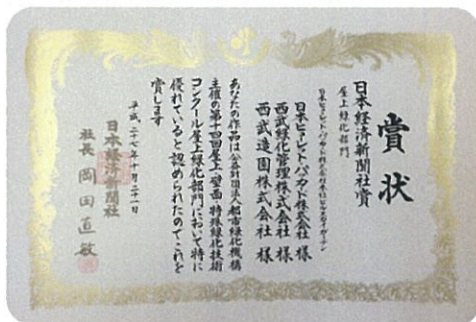 賞状
日本経済新聞社賞
屋上緑化部門
日本ヒューレット・パッカード株式会社 様
西武緑化管理株式会社 様
西武造園株式会社 様
あなたの作品は公益財団法人都市緑化機構
主催の第十四回屋上・壁面・特殊緑化技術
コンクール屋上緑化部門において特に
優れていると認められたのでこれを
賞します
平成二十七年十月二十一日
日本経済新聞社
社長 岡田直敏